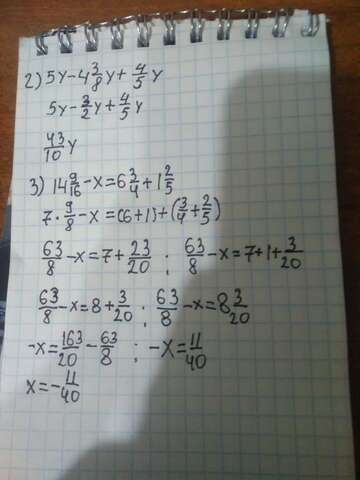 2) 5y-4 3/8 y+ 4/5 y
5y- 3/2 y+ 4/5 y
43/10 y
3) 14 9/16 -x=6 3/4 +1 2/5
7· 9/8 -x=(6+1)+(3/4 + 2/5)
63/8 -x=7+ 23/20 ; 63/8 -x=7+1+ 3/20
63/8 -x=8+ 3/20 ; 63/8 -x=8 3/20
-x= 163/20 - 63/8 ; -x= 11/40
x=- 11/40